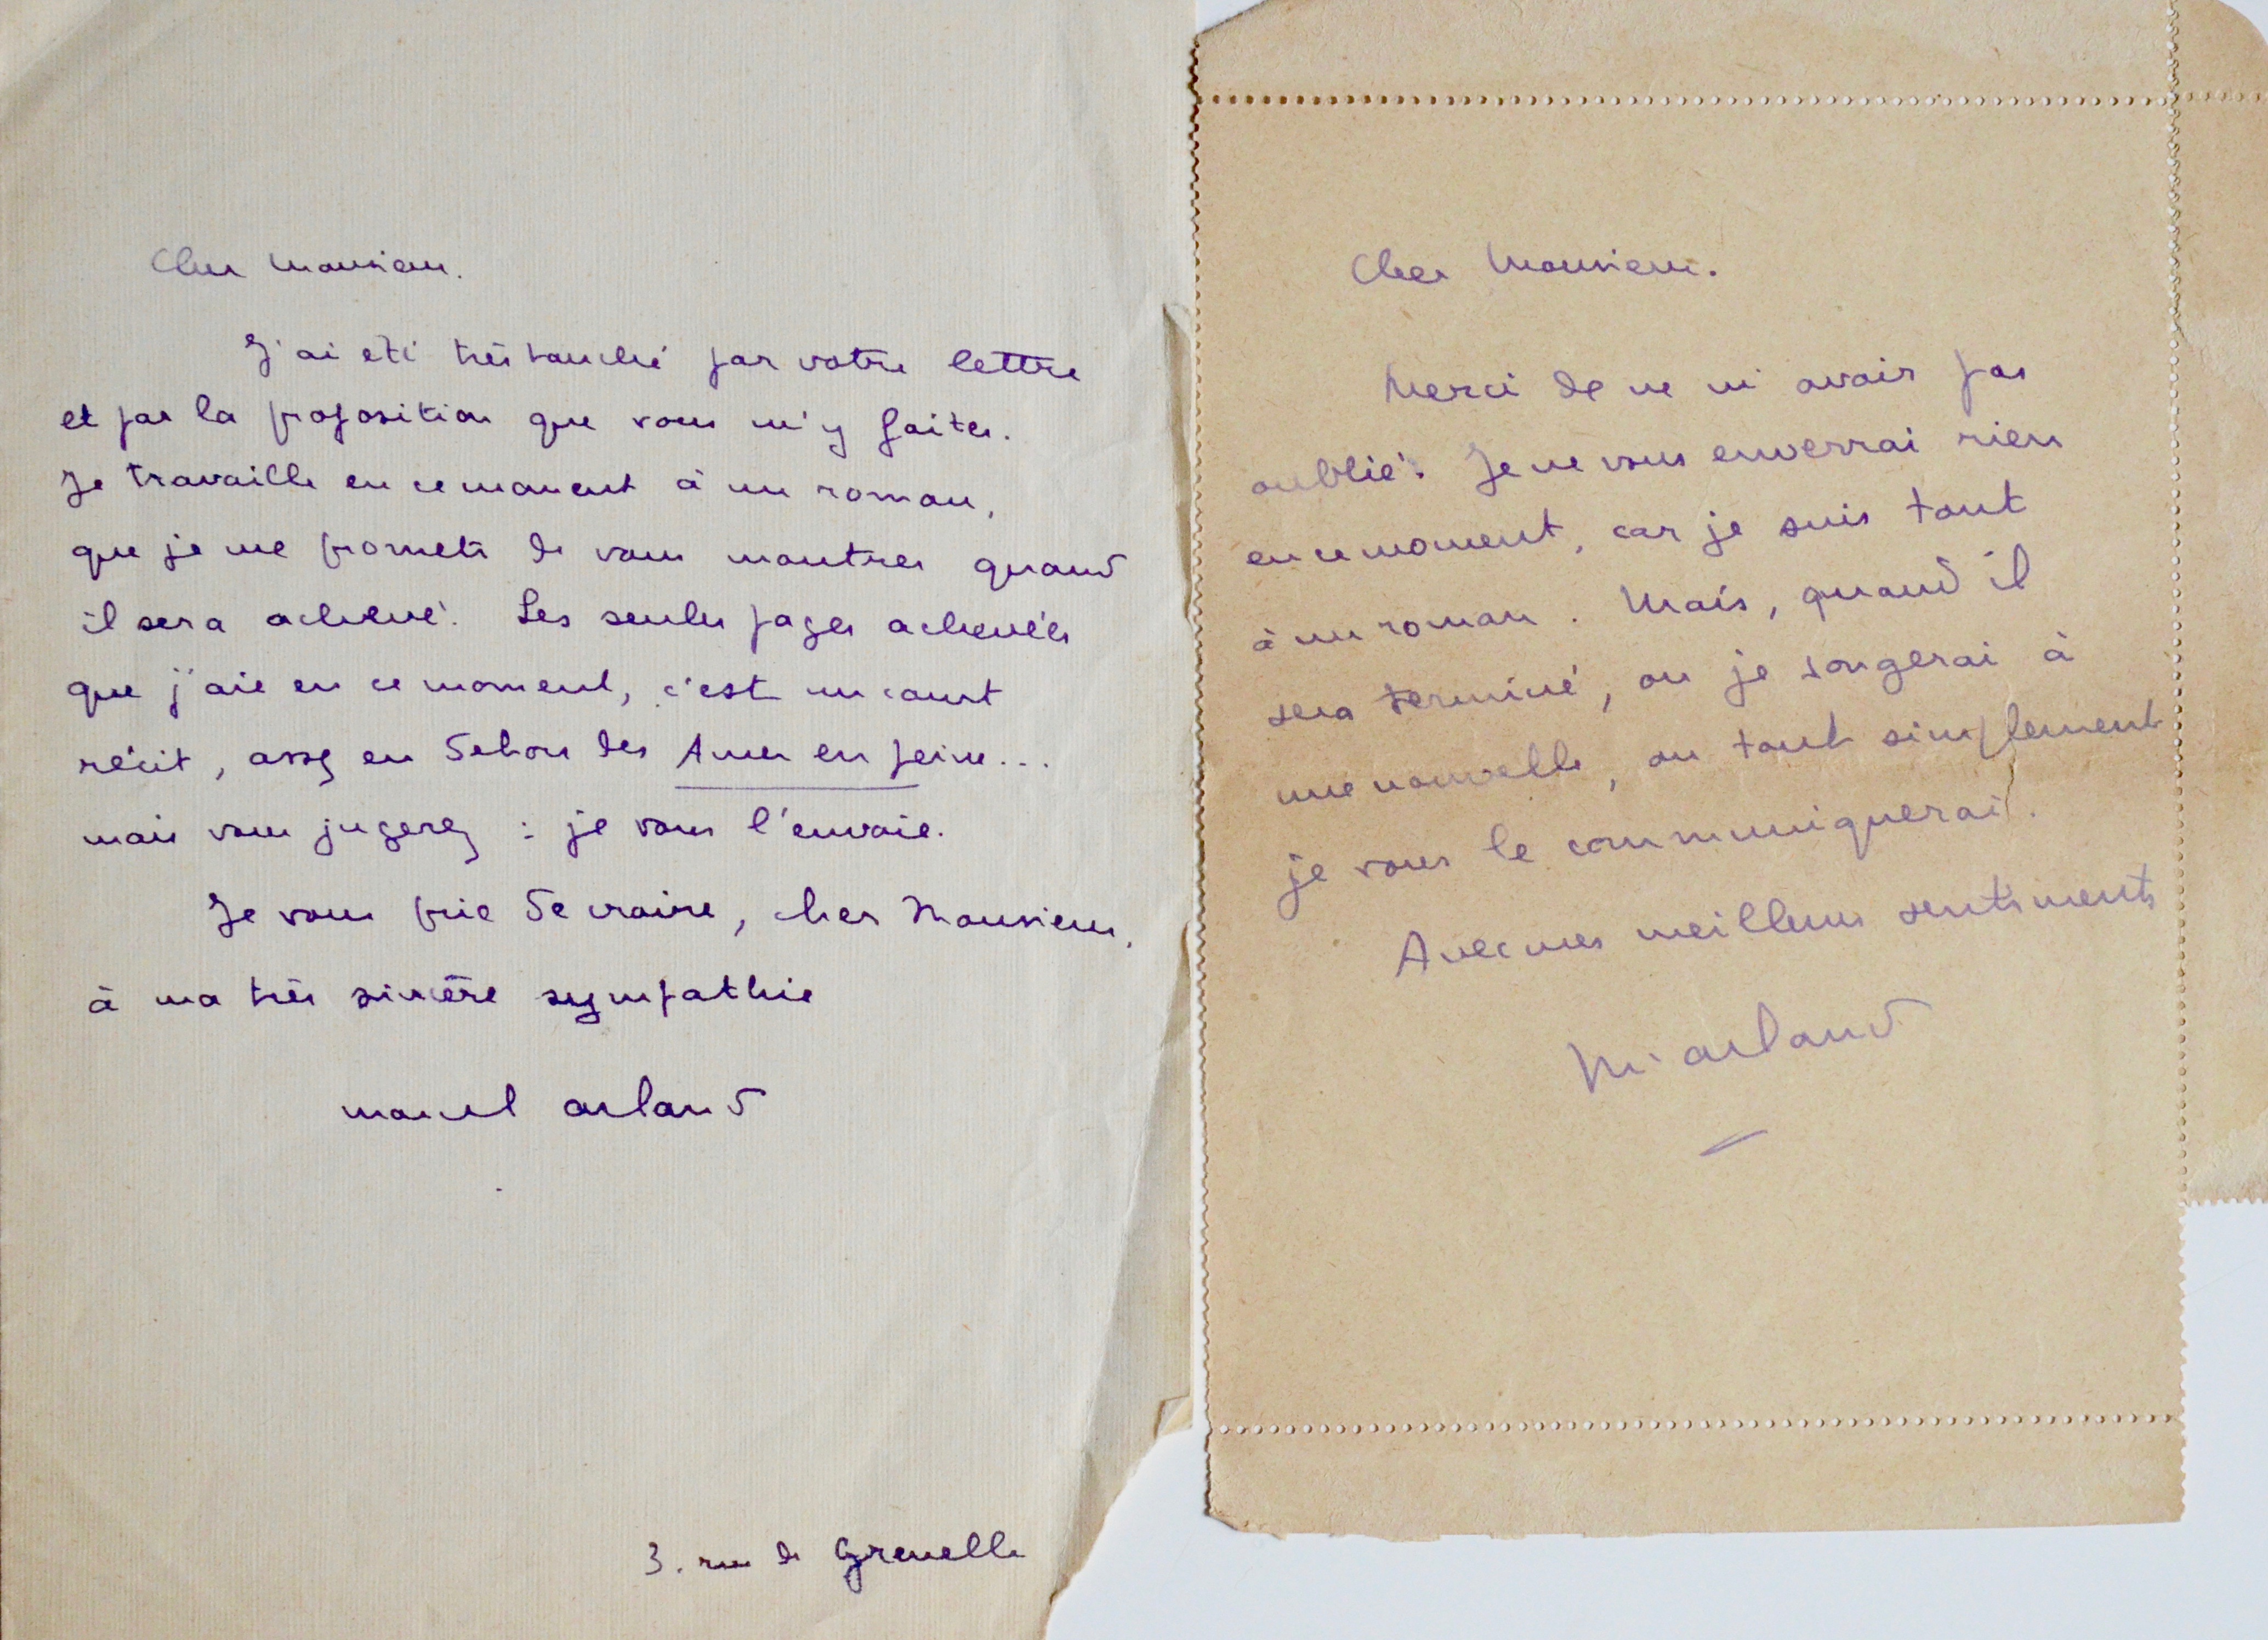 Cher Monsieur.
J'ai été très touché par votre lettre
et par la proposition que vous m'y faites.
Je travaille en ce moment à un roman,
que je me promets de vous montrer quand
il sera achevé. Les seules pages achevées
que j'aie en ce moment, c'est un court
récit, assez en dehors des Ames en peine...
mais vous jugerez : je vous l'envoie.
Je vous prie de croire, cher Monsieur,
à ma très sincère sympathie
marcel arland
3. rue de Grenelle
Cher Monsieur.
Merci de ne m'avoir pas
oublié. Je ne vous enverrai rien
en ce moment, car je suis tout
à un roman. Mais, quand il
sera terminé, ou je songerai à
une nouvelle, ou tout simplement
je vous le communiquerai.
Avec mes meilleurs sentiments
M. arland